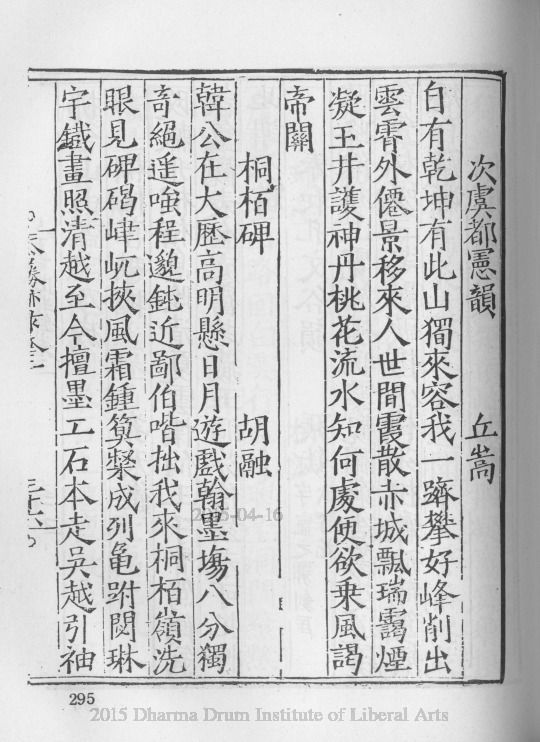 次虞都憲韻 丘嵩
自有乾坤有此山獨來容我一躋攀好峰削出
雲霄外僊景移來人世間霞散赤城飄瑞靄煙
凝玉井護神丹桃花流水知何處便欲乗風謁
帝闗
桐栢碑 胡融
韓公在大歷高明懸日月遊戲翰墨塲八分獨
奇絕遥嗤程邈鈍近鄙伯喈拙我來桐栢嶺洗
眼見碑碣嵂屼挾風霜鍾算檠成列亀趺閟琳
宇鐵畫照清越至今擅墨工石本走吳越引袖
三十六
2015-04-16
295
2015 Dharma Drum Institute of Liberal Arts